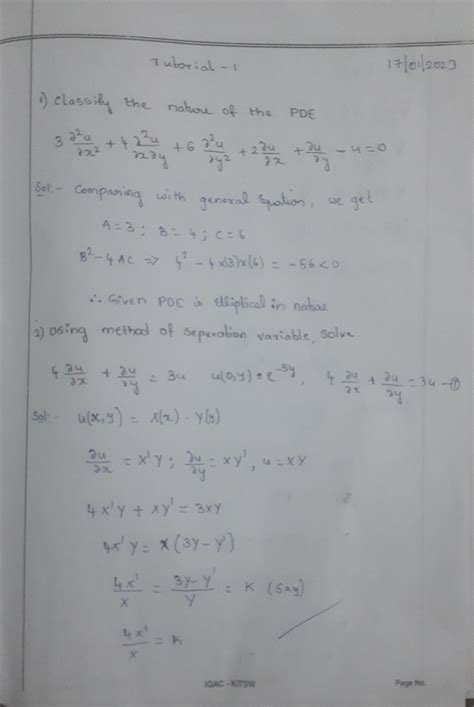 Tutorial - 1 17/01/2023
1) Classify the nature of the PDE
3 ∂²u/∂x² + 4 ∂²u/∂x∂y + 6 ∂²u/∂y² + 2 ∂u/∂x + ∂u/∂y - u = 0
Sol:- Comparing with general Equation, we get
A = 3 ; B = 4 ; C = 6
B² - 4AC ⇒ 4² - 4×(3)×(6) = -56 < 0
∴ Given PDE is elliptical in nature
2) Using method of seperation variable, solve
4 ∂u/∂x + ∂u/∂y = 3u u(0,y) = e^-5y, 4 ∂u/∂x + ∂u/∂y = 3u - ①
Sol:- u(x,y) = X(x) · Y(y)
∂u/∂x = X'Y ; ∂u/∂y = XY', u = XY
4X'Y + XY' = 3XY
4X'Y = X (3Y - Y')
4X'/X = 3Y - Y'/Y = K (Say)
4X'/X = K
IQAC - KITSW Page No.